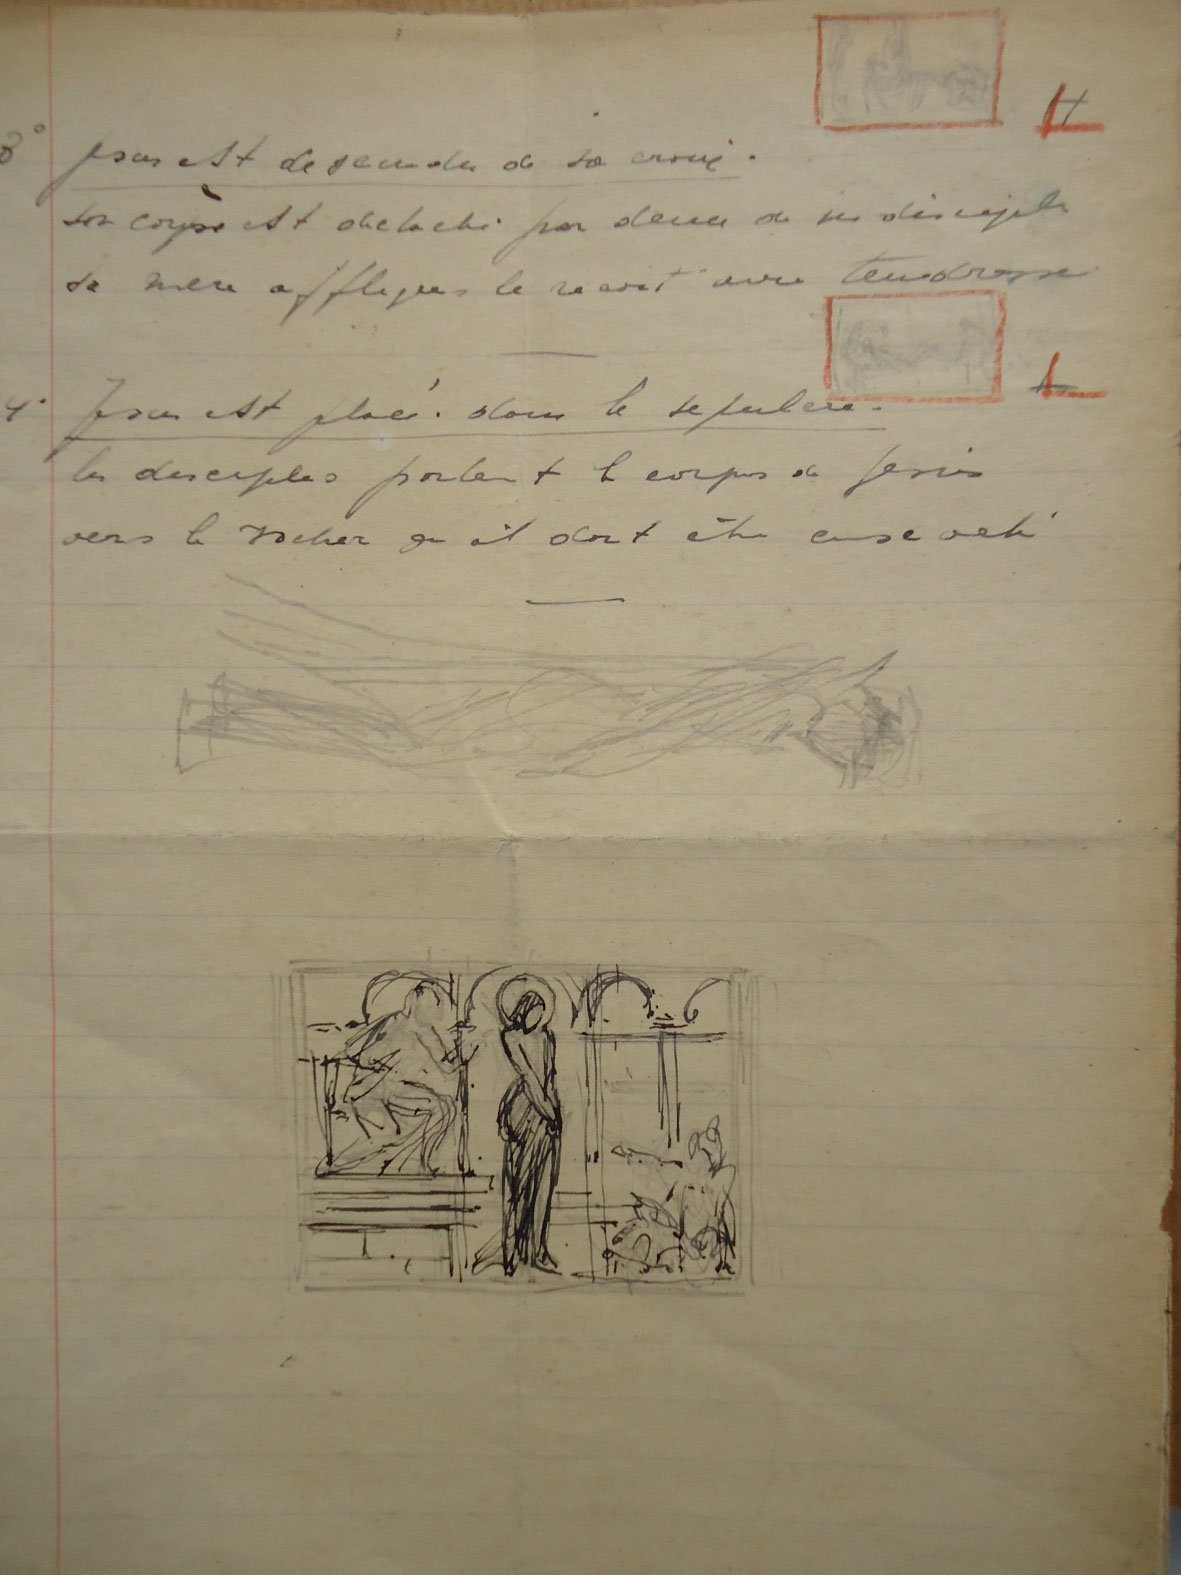 3°
Jesus est descendu de sa croix.
son corps est détaché par deux de ses disciples
sa mere affligée le recoit avec tendresse
4° Jesus est placé. dans le sepulcre.
les disciples portent le corps de Jesus
vers le rocher ou il doit être enseveli